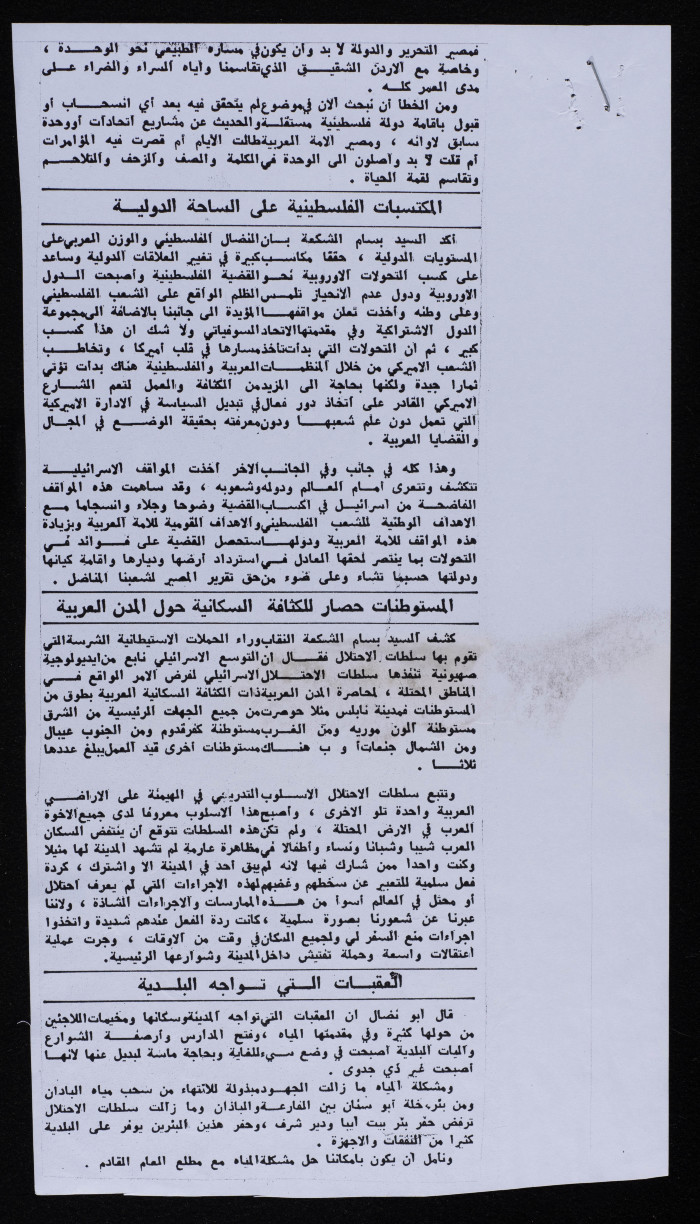 فمصير التحرير والدولة لا بد وان يكون في مساره الطبيعي نحو الوحدة ،
وخاصة مع الاردن الشقيق الذي تقاسمنا واياه السراء والضراء على
مدى العمر كله .
ومن الخطأ ان نبحث الان في موضوع لم يتحقق فيه بعد أي انسحاب أو
قبول باقامة دولة فلسطينية مستقلة والحديث عن مشاريع اتحادات أو وحدة
سابق لاوانه ، ومصير الامة العربية طالت الايام أم قصرت فيه المؤامرات
أم قلت لا بد واصلون الى الوحدة في الكلمة والصف والزحف والتلاحم
وتقاسم لقمة الحياة .
المكتسبات الفلسطينية على الساحة الدولية
أكد السيد بسام الشكعة بان النضال الفلسطيني والوزن العربي على
المستويات الدولية ، حققا مكاسب كبيرة في تغيير العلاقات الدولية وساعد
على كسب التحولات الاوروبية نحو القضية الفلسطينية وأصبحت الدول
الاوروبية ودول عدم الانحياز تلمس الظلم الواقع على الشعب الفلسطيني
وعلى وطنه وأخذت تعلن مواقفها المؤيدة الى جانبنا بالاضافة الى مجموعة
الدول الاشتراكية وفي مقدمتها الاتحاد السوفياتي ولا شك ان هذا كسب
كبير ، ثم ان التحولات التي بدأت تأخذ مسارها في قلب أمريكا ، وتخاطب
الشعب الامريكي من خلال المنظمات العربية والفلسطينية هناك بدات تؤتي
ثمارا جيدة ولكنها بحاجة الى المزيد من الكثافة والعمل لتعم الشارع
الامريكي القادر على اتخاذ دور فعال في تبديل السياسة في الادارة الامريكية
التي تعمل دون علم شعبها ودون معرفته بحقيقة الوضع في المجال
والقضايا العربية .
وهذا كله في جانب وفي الجانب الاخر أخذت المواقف الاسرائيلية
تتكشف وتتعرى امام العالم ودوله وشعوبه ، وقد ساهمت هذه المواقف
الفاضحة من اسرائيل في اكساب القضية وضوحا وجلاء وانسجاما مع
الاهداف الوطنية للشعب الفلسطيني والاهداف القومية للامة العربية وبزيادة
هذه المواقف للامة العربية ودولها ستحصل القضية على فوائد في
التحولات بما ينتصر لحقها العادل في استرداد أرضها وديارها واقامة كيانها
ودولتها حسبما تشاء وعلى ضوء من حق تقرير المصير لشعبنا المناضل .
المستوطنات حصار للكثافة السكانية حول المدن العربية
كشف السيد بسام الشكعة النقاب وراء الحملات الاستيطانية الشرسة التي
تقوم بها سلطات الاحتلال فقال ان التوسع الاسرائيلي نابع من ايديولوجية
صهيونية تنفذها سلطات الاحتلال الاسرائيلي لفرض الامر الواقع في
المناطق المحتلة ، لمحاصرة المدن العربية ذات الكثافة السكانية العربية بطوق من
المستوطنات فمدينة نابلس مثلا حوصرت من جميع الجهات الرئيسية من الشرق
مستوطنة ألون موريه ومن الغرب مستوطنة كفر قدوم ومن الجنوب عيبال
ومن الشمال جنعات أ و ب هناك مستوطنات أخرى قيد العمل يبلغ عددها
ثلاثا .
وتتبع سلطات الاحتلال الاسلوب التدريجي في الهيمنة على الاراضي
العربية واحدة تلو الاخرى ، وأصبح هذا الاسلوب معروفا لدى جميع الاخوة
العرب في الارض المحتلة ، ولم تكن هذه السلطات تتوقع ان ينتفض السكان
العرب شيبا وشبانا ونساء وأطفالا في مظاهرة عارمة لم تشهد المدينة لها مثيلا
وكنت واحدا ممن شارك فيها لانه لم يبق أحد في المدينة الا واشترك ، كردة
فعل سلمية للتعبير عن سخطهم وغضبهم لهذه الاجراءات التي لم يعرف احتلال
أو محتل في العالم أسوأ من هذه الممارسات والاجراءات الشاذة ، ولاننا
عبرنا عن شعورنا بصورة سلمية ، كانت ردة الفعل عندهم شديدة واتخذوا
اجراءات منع السفر لي ولجميع السكان في وقت من الاوقات ، وجرت عملية
اعتقالات واسعة وحملة تفتيش داخل المدينة وشوارعها الرئيسية.
العقبات التي تواجه البلدية
قال أبو نضال ان العقبات التي تواجه المدينة وسكانها ومخيمات اللاجئين
من حولها كثيرة وفي مقدمتها المياه ، وفتح المدارس وأرصفة الشوارع
وآليات البلدية أصبحت في وضع سيء للغاية وبحاجة ماسة لبديل عنها لانها
أصبحت غير ذي جدوى .
ومشكلة المياه ما زالت الجهود مبذولة للانتهاء من سحب مياه الباذان
ومن بئر خلة أبو سنان بين الفارعة والباذان وما زالت سلطات الاحتلال
ترفض حفر بئر بيت ايبا ودير شرف ، وحفر هذين البئرين يوفر على البلدية
كثيرا من النفقات والاجهزة .
ونأمل أن يكون بامكاننا حل مشكلة المياه مع مطلع العام القادم .